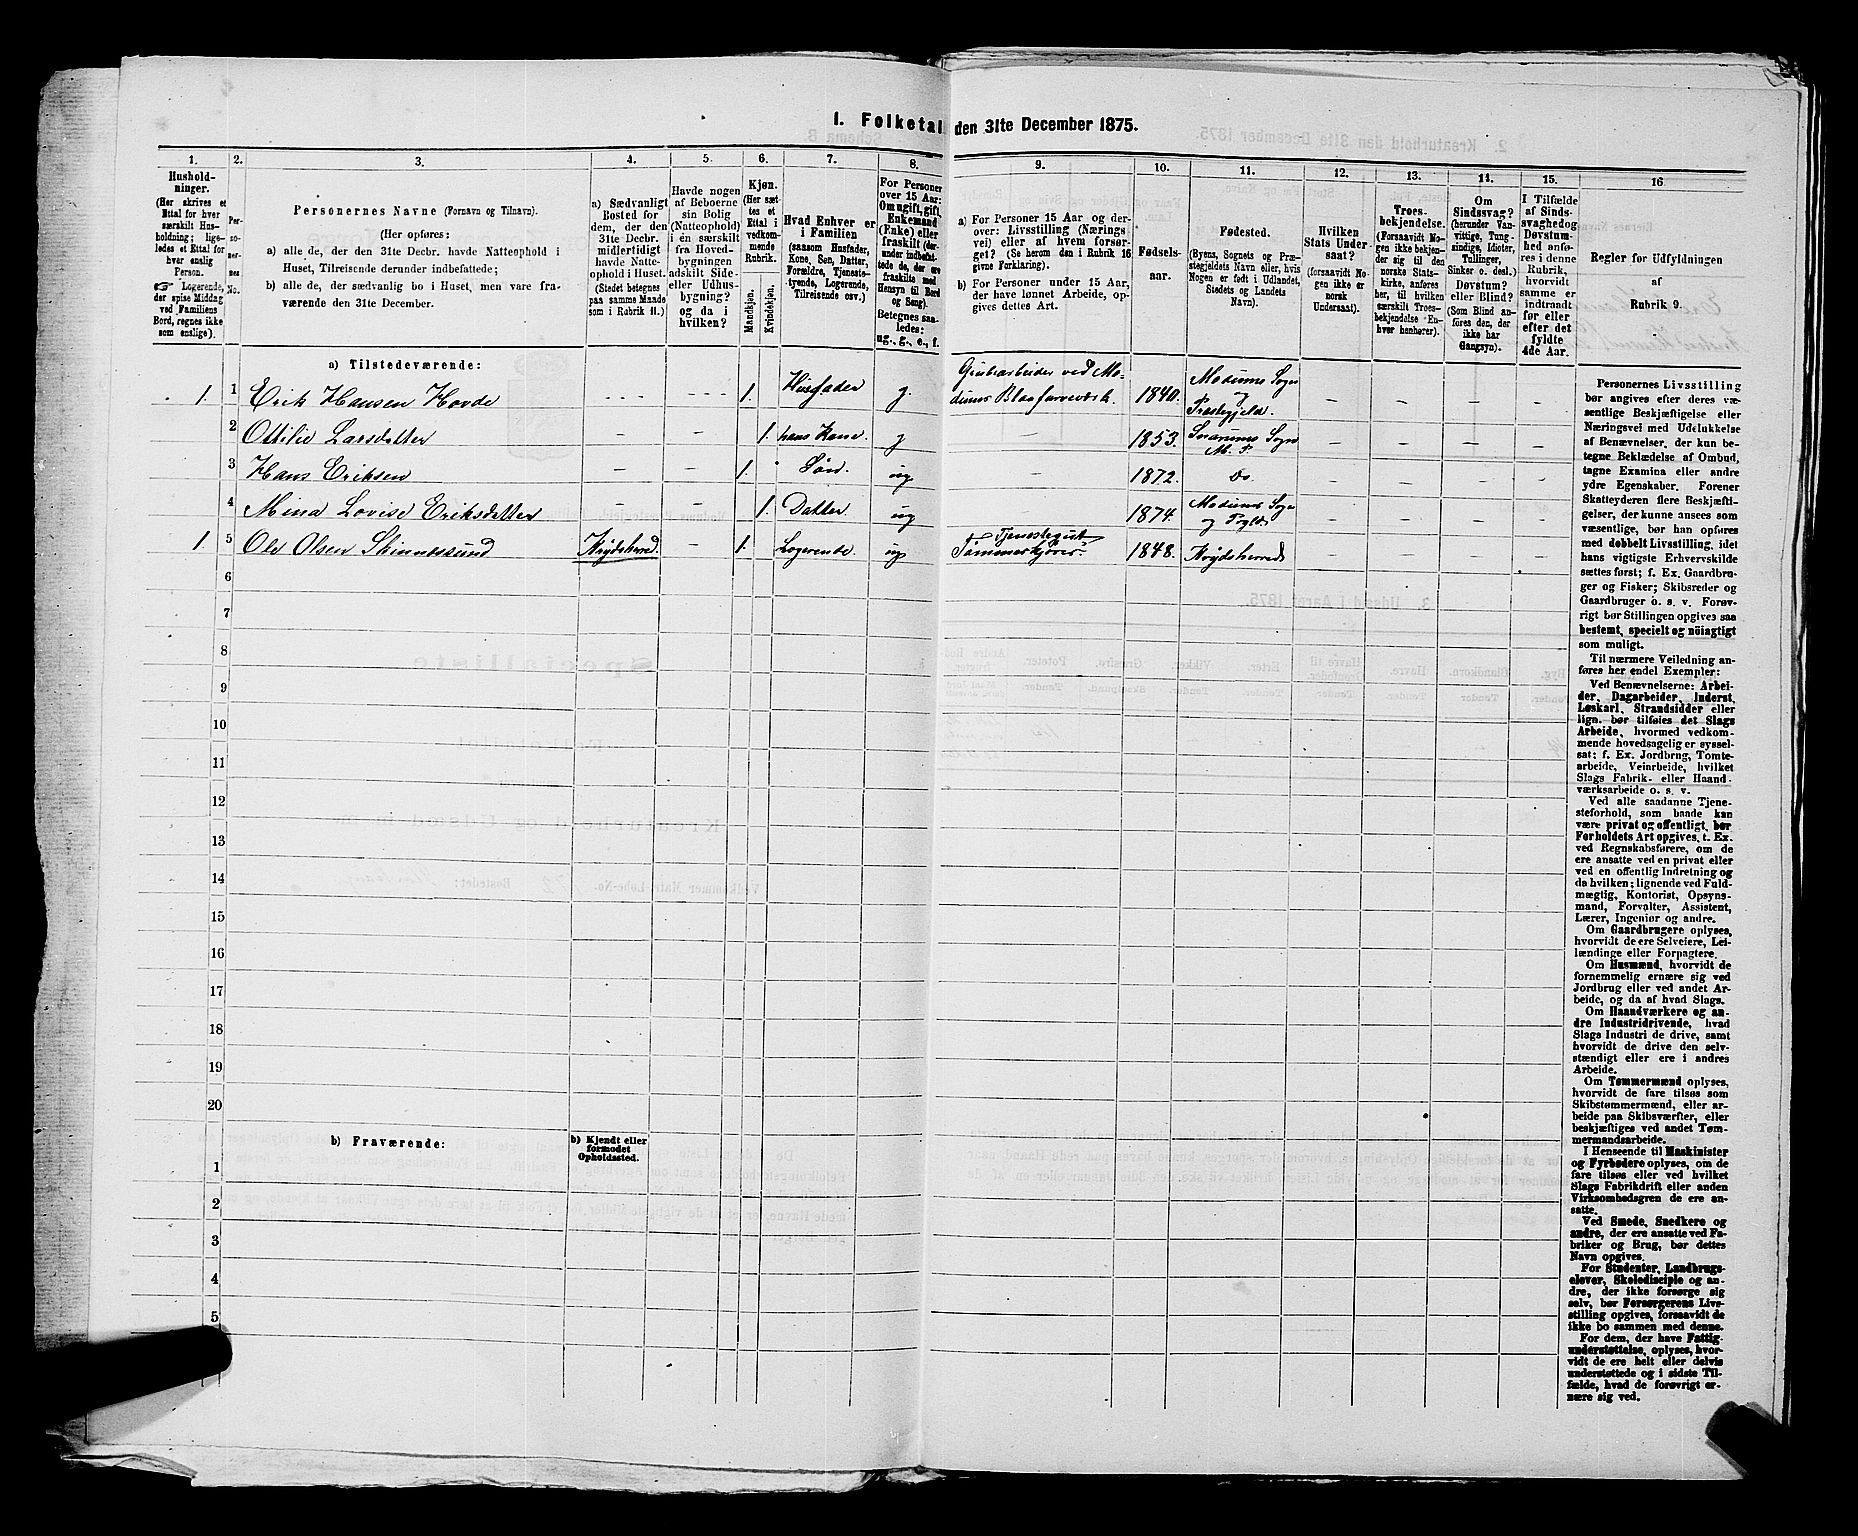 I. Folketal den 31te December 1875.
1. 2. 3. 4. 5. 6. 7. 8. 9. 10. 11. 12. 13. 14. 15. 16
Hushold-
ninger.
(Her skrives et
Ettal for hver
særskilt Hus-
holdning; lige-
ledes et Ettal
for hver enslig
Person.
☞ Logerende,
der spise Middag
ved Familiens
Bord, regnes ikke
som enslige).
Per-
so-
ner-
nes
No.
Personernes Navne (Fornavn og Tilnavn).
(Her opføres:
a) alle de, der den 31te Decbr. havde Natteophold i
Huset, Tilreisende derunder indbefattede;
b) alle de, der sædvanlig bo i Huset, men vare fra-
værende den 31te December.
a) Sædvanligt
Bosted for
dem, der den
31te Decbr.
midlertidigt
havde Natte-
ophold i Huset.
(Stedet betegnes
paa samme Maade
som i Rubrik 11.)
Havde nogen
af Beboerne
sin Bolig
(Natteophold)
i en særskilt
fra Hoved-
bygningen
adskilt Side-
eller Udhus-
bygning?
og da i
hvilken?
Kjøn.
(Her sæt-
tes et
Ettal i
vedkom-
mende
Rubrik.
Mandkjøn.
Kvindekjøn.
Hvad Enhver er
i Familien
(saasom Husfader,
Kone, Søn, Datter,
Forældre, Tjeneste-
tyende, Logerende,
Tilreisende osv.)
For Personer
over 15 Aar:
Om ugift, gift,
Enkemand
(Enke) eller
fraskilt (der-
under indbefat-
tede de, der ere
fraskilte med
Hensyn til Bord
og Seng).
Betegnes saa-
ledes:
ug., g., e., f.
a) For Personer 15 Aar og der-
over: Livsstilling (Nærings-
vei) eller af hvem forsør-
get? (Se herom den i Rubrik 16
givne Forklaring).
b) For Personer under 15 Aar,
der have lønnet Arbeide, op-
gives dettes Art.
Fødsels-
aar.
Fødested.
(Byens, Sognets og Præ-
stegjeldets Navn eller, hvis
Nogen er født i Udlandet,
Stedets og Landets
Navn).
Hvilken
Stats Under-
saat?
(forsaavidt No-
gen ikke er
norsk
Undersaat).
Troes-
bekjendelse.
(Forsaavidt No-
gen ikke bekjen-
der sig til den
norske Stats-
kirke, anføres
her, til hvilken
særskilt Troes-
bekjendelse En-
hver henhører).
Om
Sindssvag?
(herunder Van-
vittige, Tung-
sindige, Idioter,
Tullinger,
Sinker o. desl.)
Døvstum?
eller Blind?
(Som Blind an-
føres den, der
ikke har
Gangsyn).
I Tilfælde
af Sinds-
svaghed og
Døvstum-
hed anfø-
res i denne
Rubrik,
hvorvidt
samme er
indtraadt
før eller
efter det
fyldte
4de Aar.
Regler for Udfyldningen
af
Rubrik 9.
a) Tilstedeværende:
1 1 Erik Hansen Hovde - - - - - 1. Husfader g. Grubearbeider ved Mo-
dums Blaafarveværk. 1840. Modums Sogn og Præstegjeld. - - - -
2 Ottilie Larsdatter - - 1. hans Kone. g - 1853. Snarums Sogn M. P. - - - -
3 Hans Eriksen - - 1. Søn. ug - 1872. Do. - - - -
4 Mina Lovise Eriksdatter - - 1. Datter ug - 1874. Modums Sogn og Prgld - - - -
1. 5 Ole Olsen Skinnessund Krydsherred. - 1. Logerende. ug Tjenestegut
Tømmerkjører 1848. Krydsherred - - - -
6
7
8
9
10
11
12
13
14
15
16
17
18
19
20
b) Fraværende:
b) Kjendt eller
formodet
Opholdssted.
1
2
3
4
5
Personernes Livsstilling
bør angives efter deres væ-
sentlige Beskjæftigelse eller
Næringsvei med Udelukkelse
af Benævnelser, der kun be-
tegne Beklædelse af Ombud,
tagne Examina eller andre
ydre Egenskaber. Forener
Skatteyderen flere Beskjæfti-
gelser, der kunne ansees som
væsentlige, bør han opføres
med dobbelt Livsstilling, idet
hans vigtigste Erhvervskilde
sættes først; f. Ex. Gaardbru-
ger og Fisker; Skibsreder og
Gaardbruger o. s. v. Forøv-
rigt bør Stillingen opgives saa
bestemt, specielt og nöiagtigt
som muligt.
Til nærmere Veiledning an-
føres her endel Exempler:
Ved Benævnelserne: Arbei-
der, Dagarbeider, Inderst,
Løskarl, Strandsidder eller
lign. bør tilføies det Slags
Arbeide, hvormed vedkom-
mende hovedsagelig er syssel-
sat; f. Ex. Jordbrug, Tomte-
arbeide, Veiarbeide, hvilket
Slags Fabrik- eller Haand-
værksarbeide o. s. v.
Ved alle saadanne Tjene-
steforhold, som baade kan
være privat og offentligt, bør
Forholdets Art opgives, t. Ex.
ved Regnskabsførere, om de
ere ansatte ved en privat eller
ved en offentlig Indretning og
da hvilken; lignende ved Fuld-
mægtig, Kontorist, Opsyns-
mand, Forvalter, Assistent,
Lærer, Ingeniør og andre.
Om Gaardbrugere oplyses,
hvorvidt de ere Selveiere, Lei-
lændinge eller Forpagtere.
Om Husmænd, hvorvidt de
fornemmelig ernære sig ved
Jordbrug eller ved andet Ar-
beide, og da af hvad Slags.
Om Haandværkere og an-
dre Industridrivende, hvad
Slags Industri de drive, samt
hvorvidt de drive den selv-
stændigt eller ere i andres
Arbeide.
Om Tømmermænd oplyses,
hvorvidt de fare tilsøs som
Skibstømmermænd, eller ar-
beide paa Skibsværfter, eller
beskjæftiges ved andet Tøm-
mermandsarbeide.
I Henseende til Maskinister
og Fyrbødere oplyses, om de
fare tilsøs eller ved hvilket
Slags Fabrikdrift eller anden
Virksomhedsgren de ere an-
satte.
Ved Smede, Snedkere og
andre, der ere ansatte ved Fa-
briker og Brug, bør dettes
Navn opgives.
For Studenter, Landbrugs-
elever, Skoledisciple og an-
dre, der ikke forsørge sig
selv, bør Forsørgerens Livs-
stilling opgives, forsaavidt de
ikke bo sammen med denne.
For dem, der have Fattig-
understøttelse, oplyses, hvor-
vidt de ere helt eller delvis
understøttede og i sidste Til-
fælde, hvad de forøvrigt er-
nære sig ved.